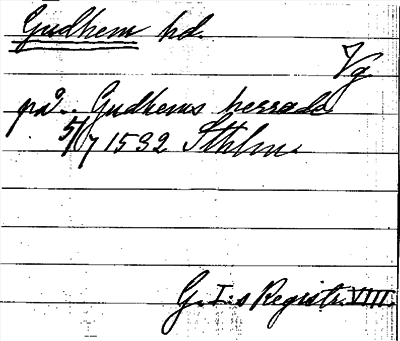 Gudhem hd.
Vg
på.. Gudhems herrade
5/7 1532 Sthlm.
G. I:s Registr. VIII.